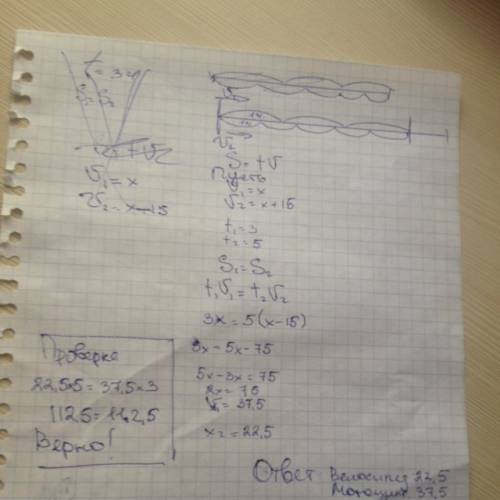 t = 3
V₁ = x
V₂ = x - 15
V₂
S = tV
Пусть
V₁ = x
V₂ = x + 15
t₁ = 3
t₂ = 5
S₁ = S₂
t₁V₁ = t₂V₂
3x = 5(x - 15)
3x - 5x - 75
5x - 3x = 75
2x = 75
V₁ = 37,5
x₂ = 22,5
Проверка
22,5x5 = 37,5x3
112,5 = 112,5
Верно!
Ответ: Велосипед 22,5
Мотоцикл 37,5